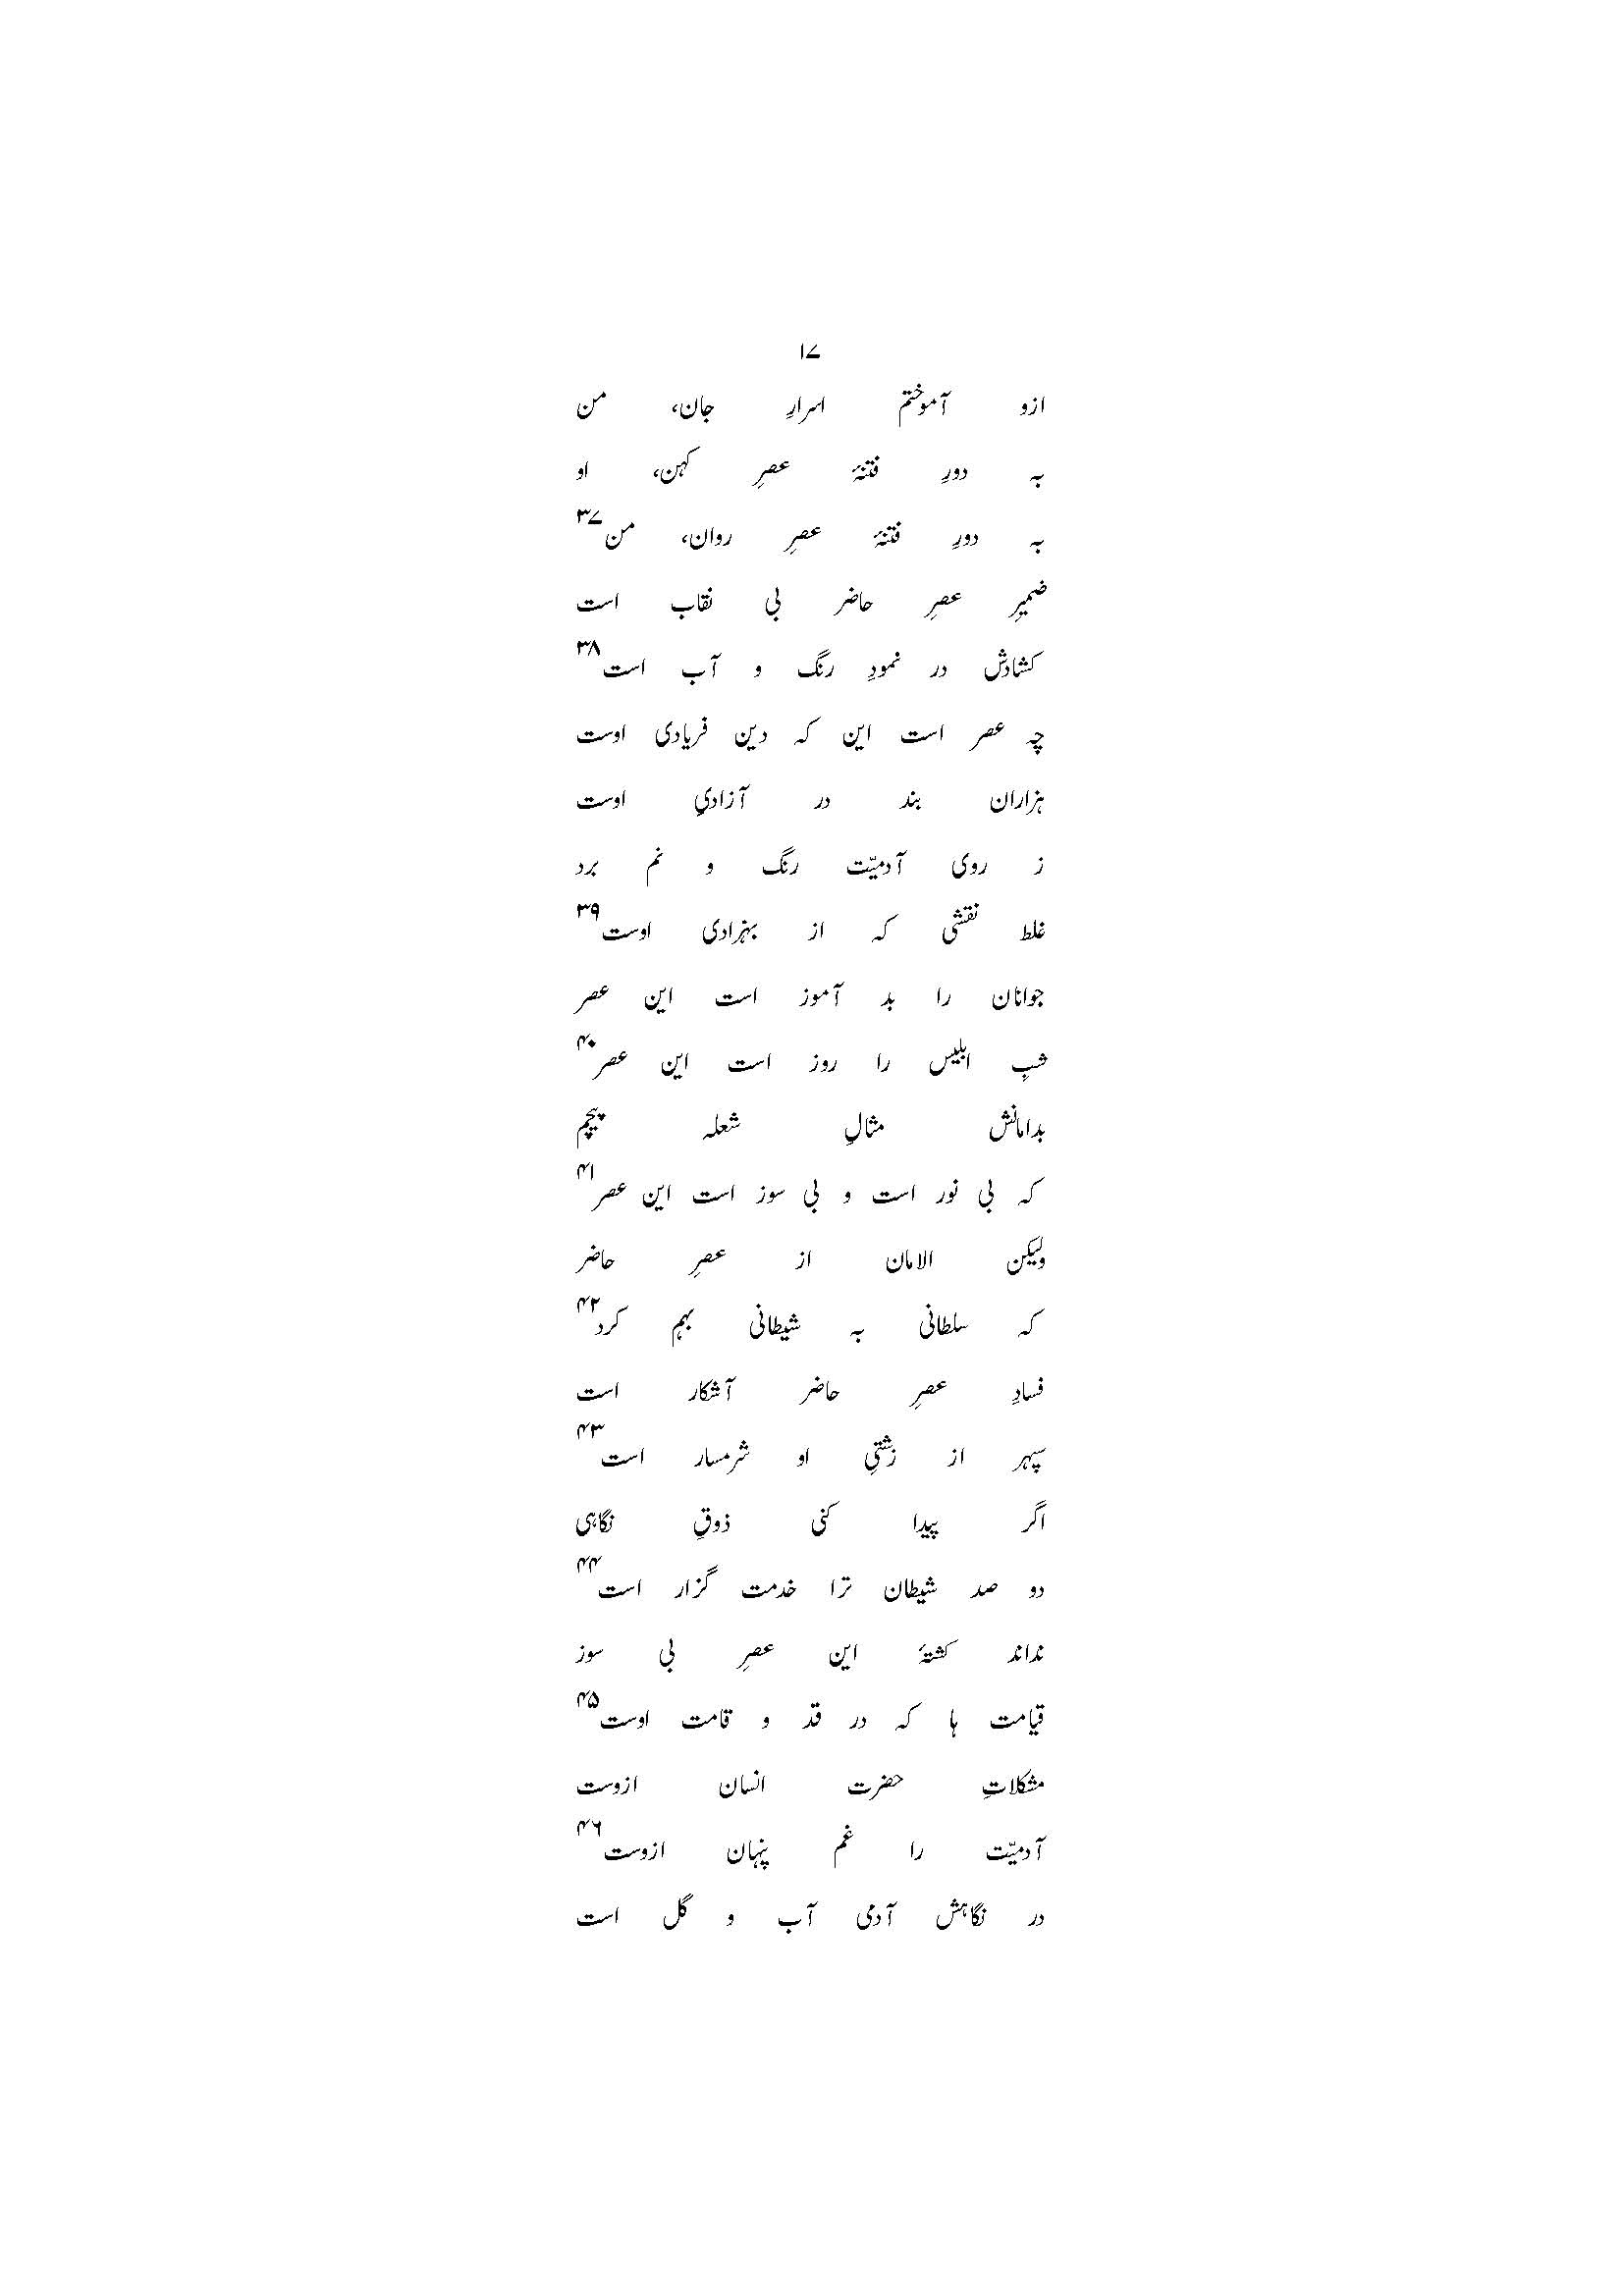 ۱۷
ازو آموختم اسرارِ جان، من
بہ دورِ فتنۂ عصرِ کہن، او
بہ دورِ فتنۂ عصرِ روان، من۳۷
ضمیرِ عصرِ حاضر بی نقاب است
کشادش در نمودِ رنگ و آب است۳۸
چہ عصر است این کہ دین فریادی اوست
ہزاران بند در آزادیِ اوست
ز روی آدمیّت رنگ و نم برد
غلط نقشی کہ از بہزادی اوست۳۹
جوانان را بد آموز است این عصر
شبِ ابلیس را روز است این عصر۴۰
بدامانش مثالِ شعلہ پیچم
کہ بی نور است و بی سوز است این عصر۴۱
ولیکن الامان از عصرِ حاضر
کہ سلطانی بہ شیطانی بہم کرد۴۲
فسادِ عصرِ حاضر آشکار است
سپہر از زشتیِ او شرمسار است۴۳
اگر پیدا کنی ذوقِ نگاہی
دو صد شیطان ترا خدمت گزار است۴۴
نداند کشتۂ این عصرِ بی سوز
قیامت ہا کہ در قد و قامت اوست۴۵
مشکلاتِ حضرت انسان ازوست
آدمیّت را غم پنہان ازوست۴۶
در نگاہش آدمی آب و گل است